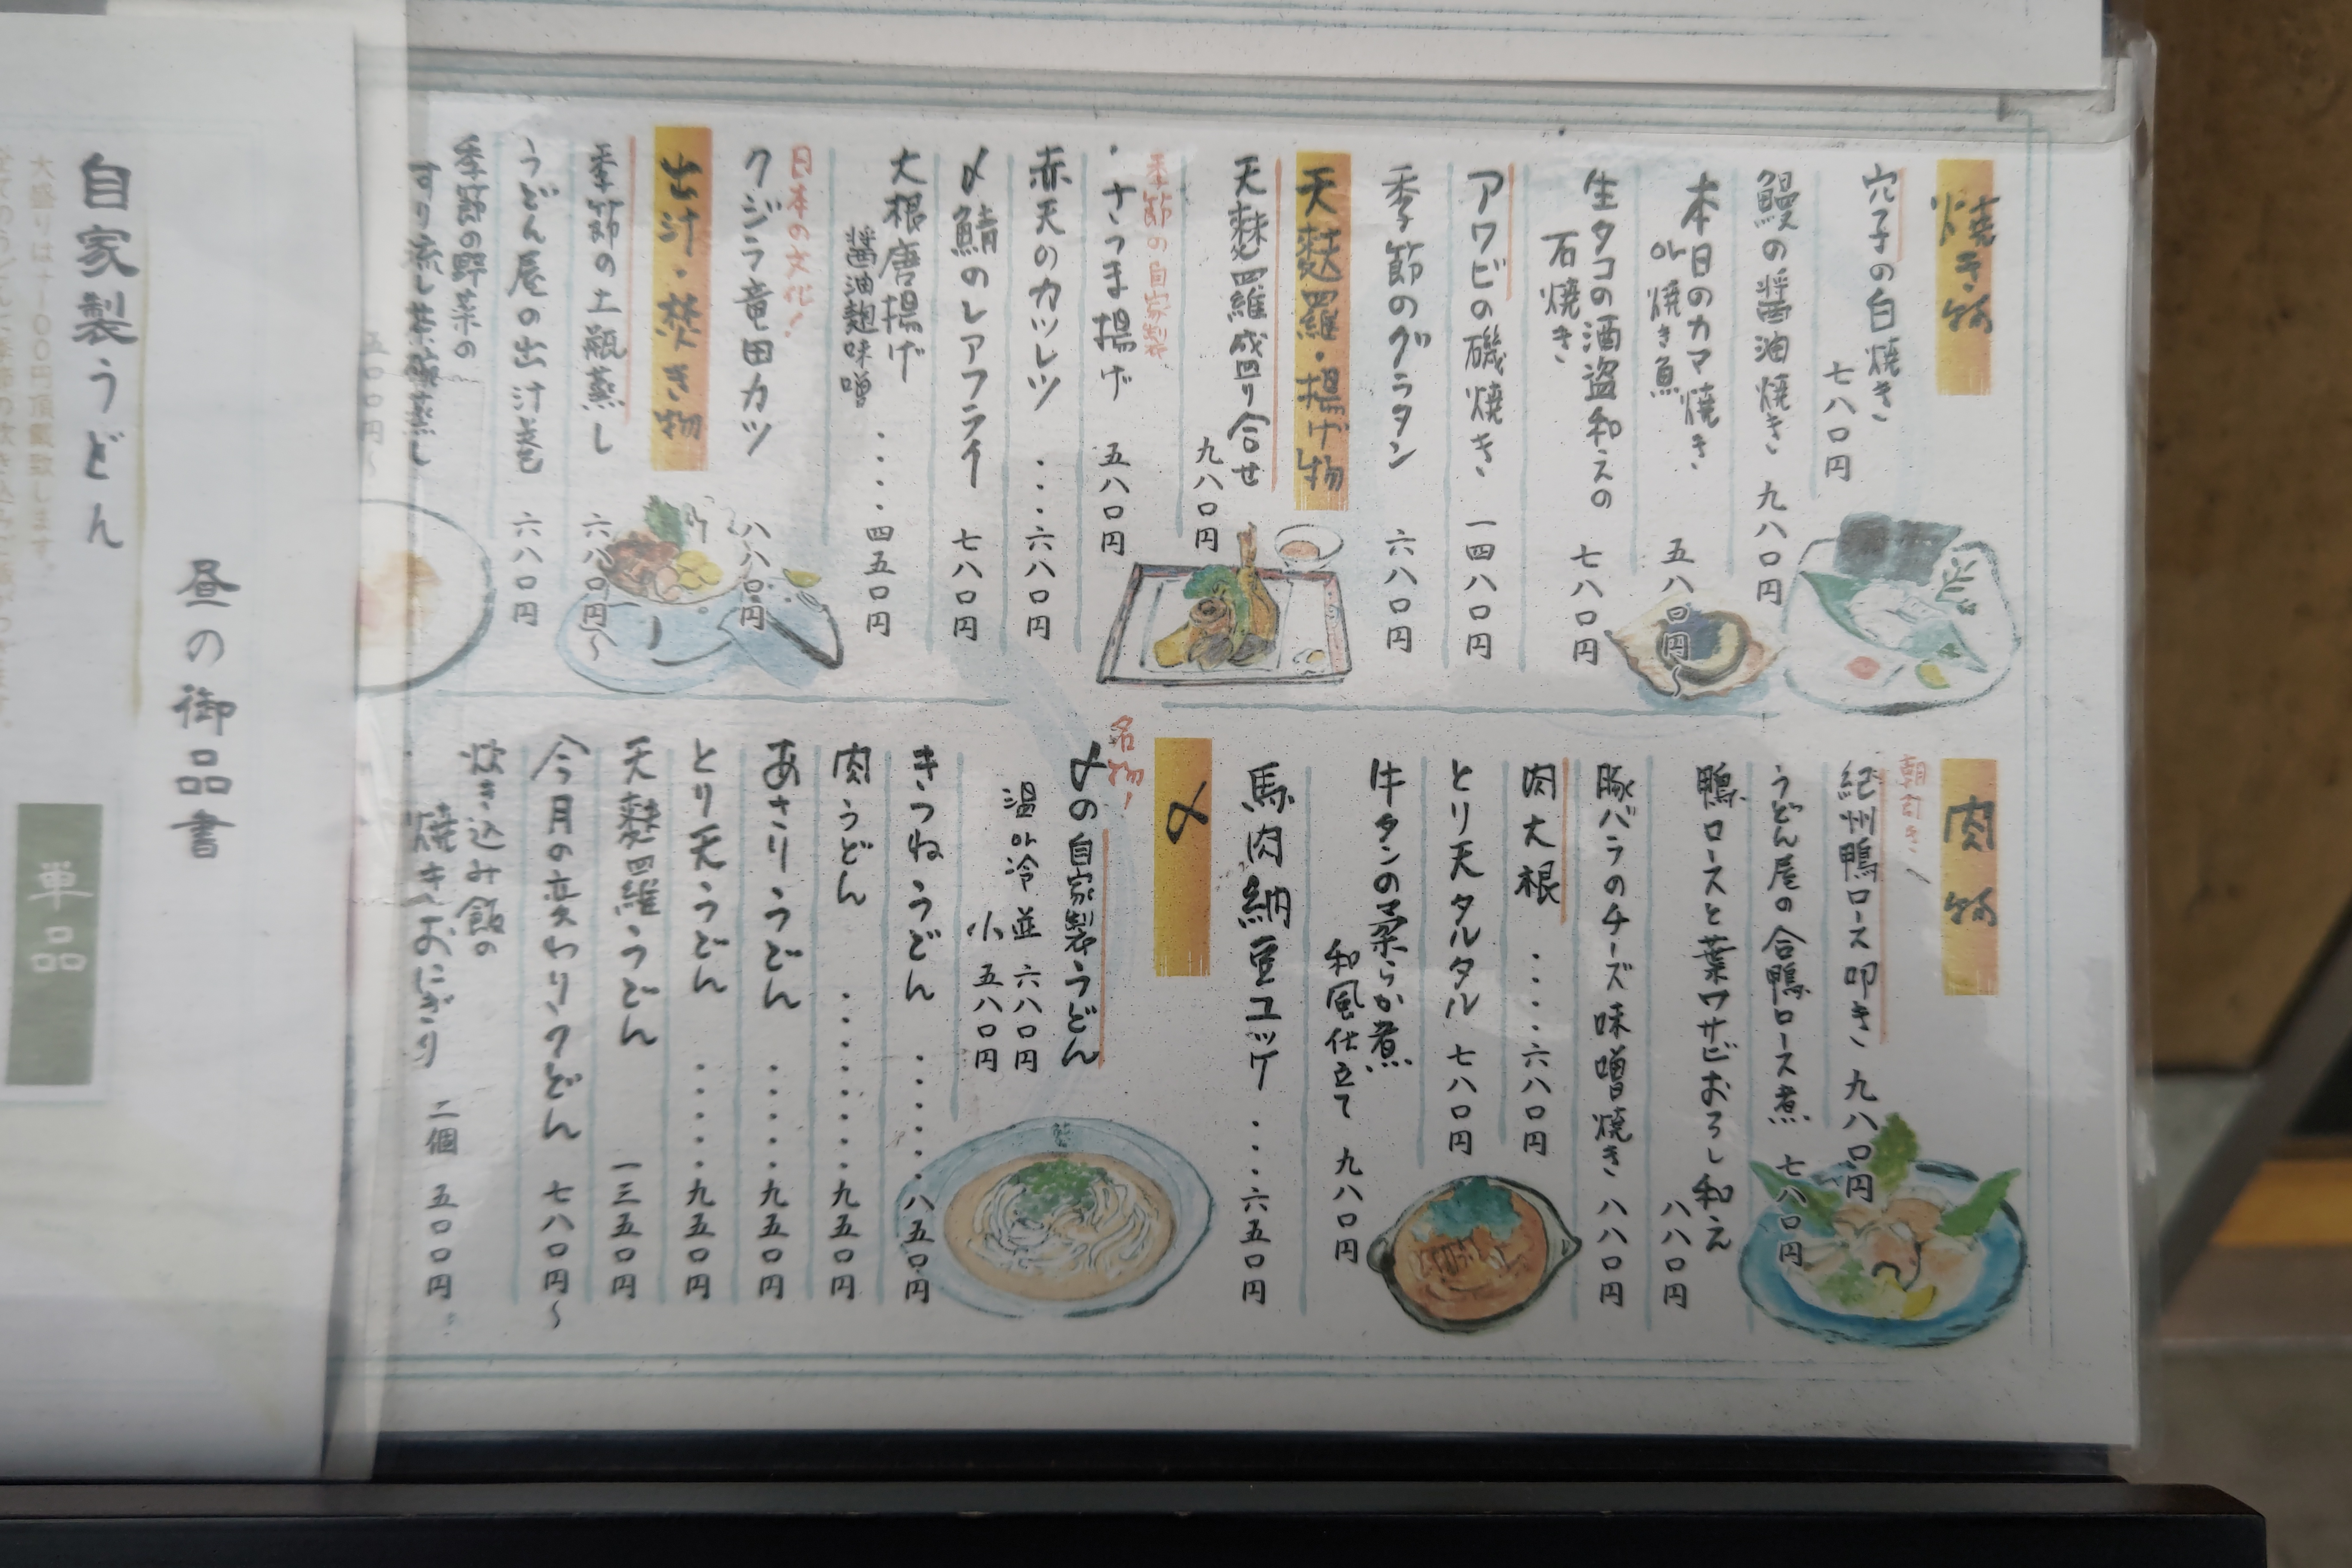 焼き物
穴子の白焼き
七八〇円
鰻の醤油焼き 九八〇円
本日のカマ焼き
or焼き魚
五八〇円〜
生タコの酒盗和えの
石焼き
七八〇円
アワビの磯焼き 一四八〇円
季節のグラタン 六八〇円
天麩羅・揚げ物
天麩羅盛り合せ
九八〇円
季節の自家製
・さつま揚げ 五八〇円
赤天のカツレツ ・・・六八〇円
〆鯖のレアフライ 七八〇円
大根唐揚げ
醤油麹味噌 ・・・・四五〇円
日本の文化!
クジラ竜田カツ 八八〇円
出汁・焚き物
季節の土瓶蒸し 六八〇円〜
うどん屋の出汁巻 六八〇円
季節の野菜の
すり流し茶碗蒸し
五〇〇円〜
肉物
朝引き!
紀州鴨ロース叩き 九八〇円
うどん屋の合鴨ロース煮 七八〇円
鴨ロースと葉ワサビおろし和え
八八〇円
豚バラのチーズ味噌焼き 八八〇円
肉大根 ・・・・六八〇円
とり天タルタル 七八〇円
牛タンの柔らか煮
和風仕立て 九八〇円
馬肉納豆ユッケ ・・・六五〇円
〆
名物!
〆の自家製うどん
温or冷 並 六八〇円
小 五八〇円
きつねうどん ・・・・・八五〇円
肉うどん ・・・・・・九五〇円
あさりうどん ・・・・・九五〇円
とり天うどん ・・・・・九五〇円
天麩羅うどん 一三五〇円
今月の変わりうどん 七八〇円〜
炊き込み飯の
焼きおにぎり 二個 五〇〇円
昼の御品書
自家製うどん
大盛りは+100円頂戴致します。
単品